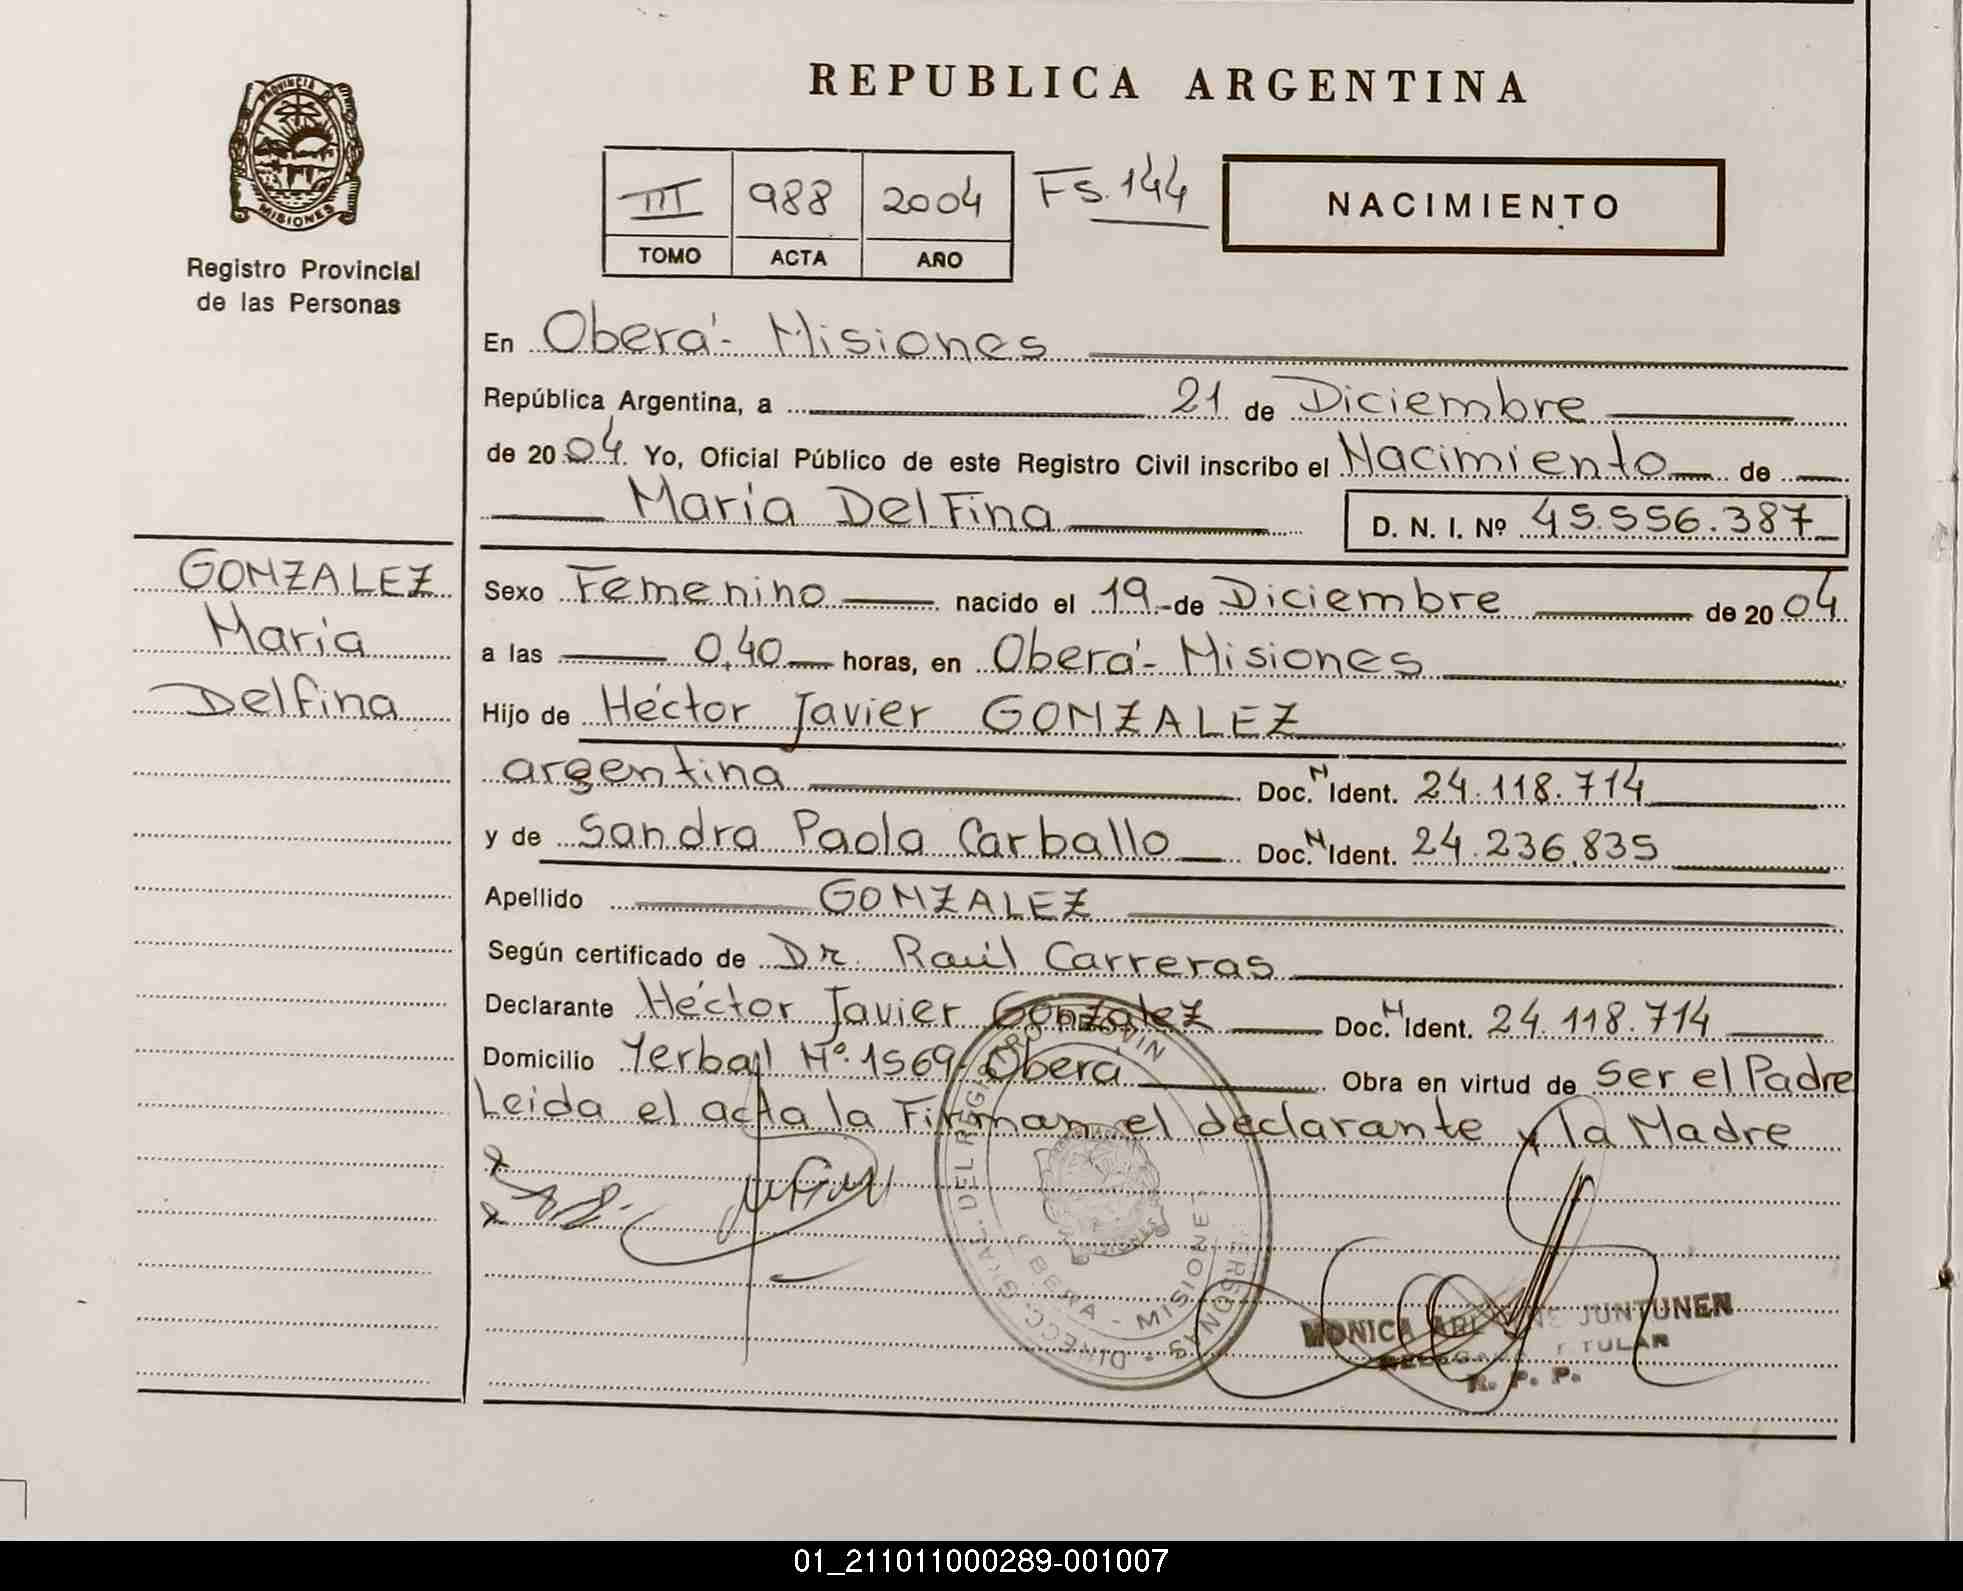 REPUBLICA ARGENTINA
PROVINCIA DE
MISIONES
Registro Provincial
de las Personas
III 988 2004 Fs. 144
TOMO ACTA AÑO
NACIMIENTO
En Oberá - Misiones
República Argentina, a 21 de Diciembre
de 2004. Yo, Oficial Público de este Registro Civil inscribo el Nacimiento de
María Delfina D. N. I. Nº 45.556.387
GONZALEZ
María
Delfina
Sexo Femenino nacido el 19 de Diciembre de 2004
a las 0,40 horas, en Oberá - Misiones
Hijo de Héctor Javier GONZALEZ
argentina Doc. N Ident. 24.118.714
y de Sandra Paola Carballo Doc. N Ident. 24.236.835
Apellido GONZALEZ
Según certificado de Dr. Raúl Carreras
Declarante Héctor Javier Gonzalez Doc. N Ident. 24.118.714
Domicilio Yerbal Nº 1569 - Oberá Obra en virtud de Ser el Padre
Leida el acta la Firman el declarante y la Madre
MISIONES
MONICA JUNTUNEN
TITULAR
R. P. P.
01_211011000289-001007